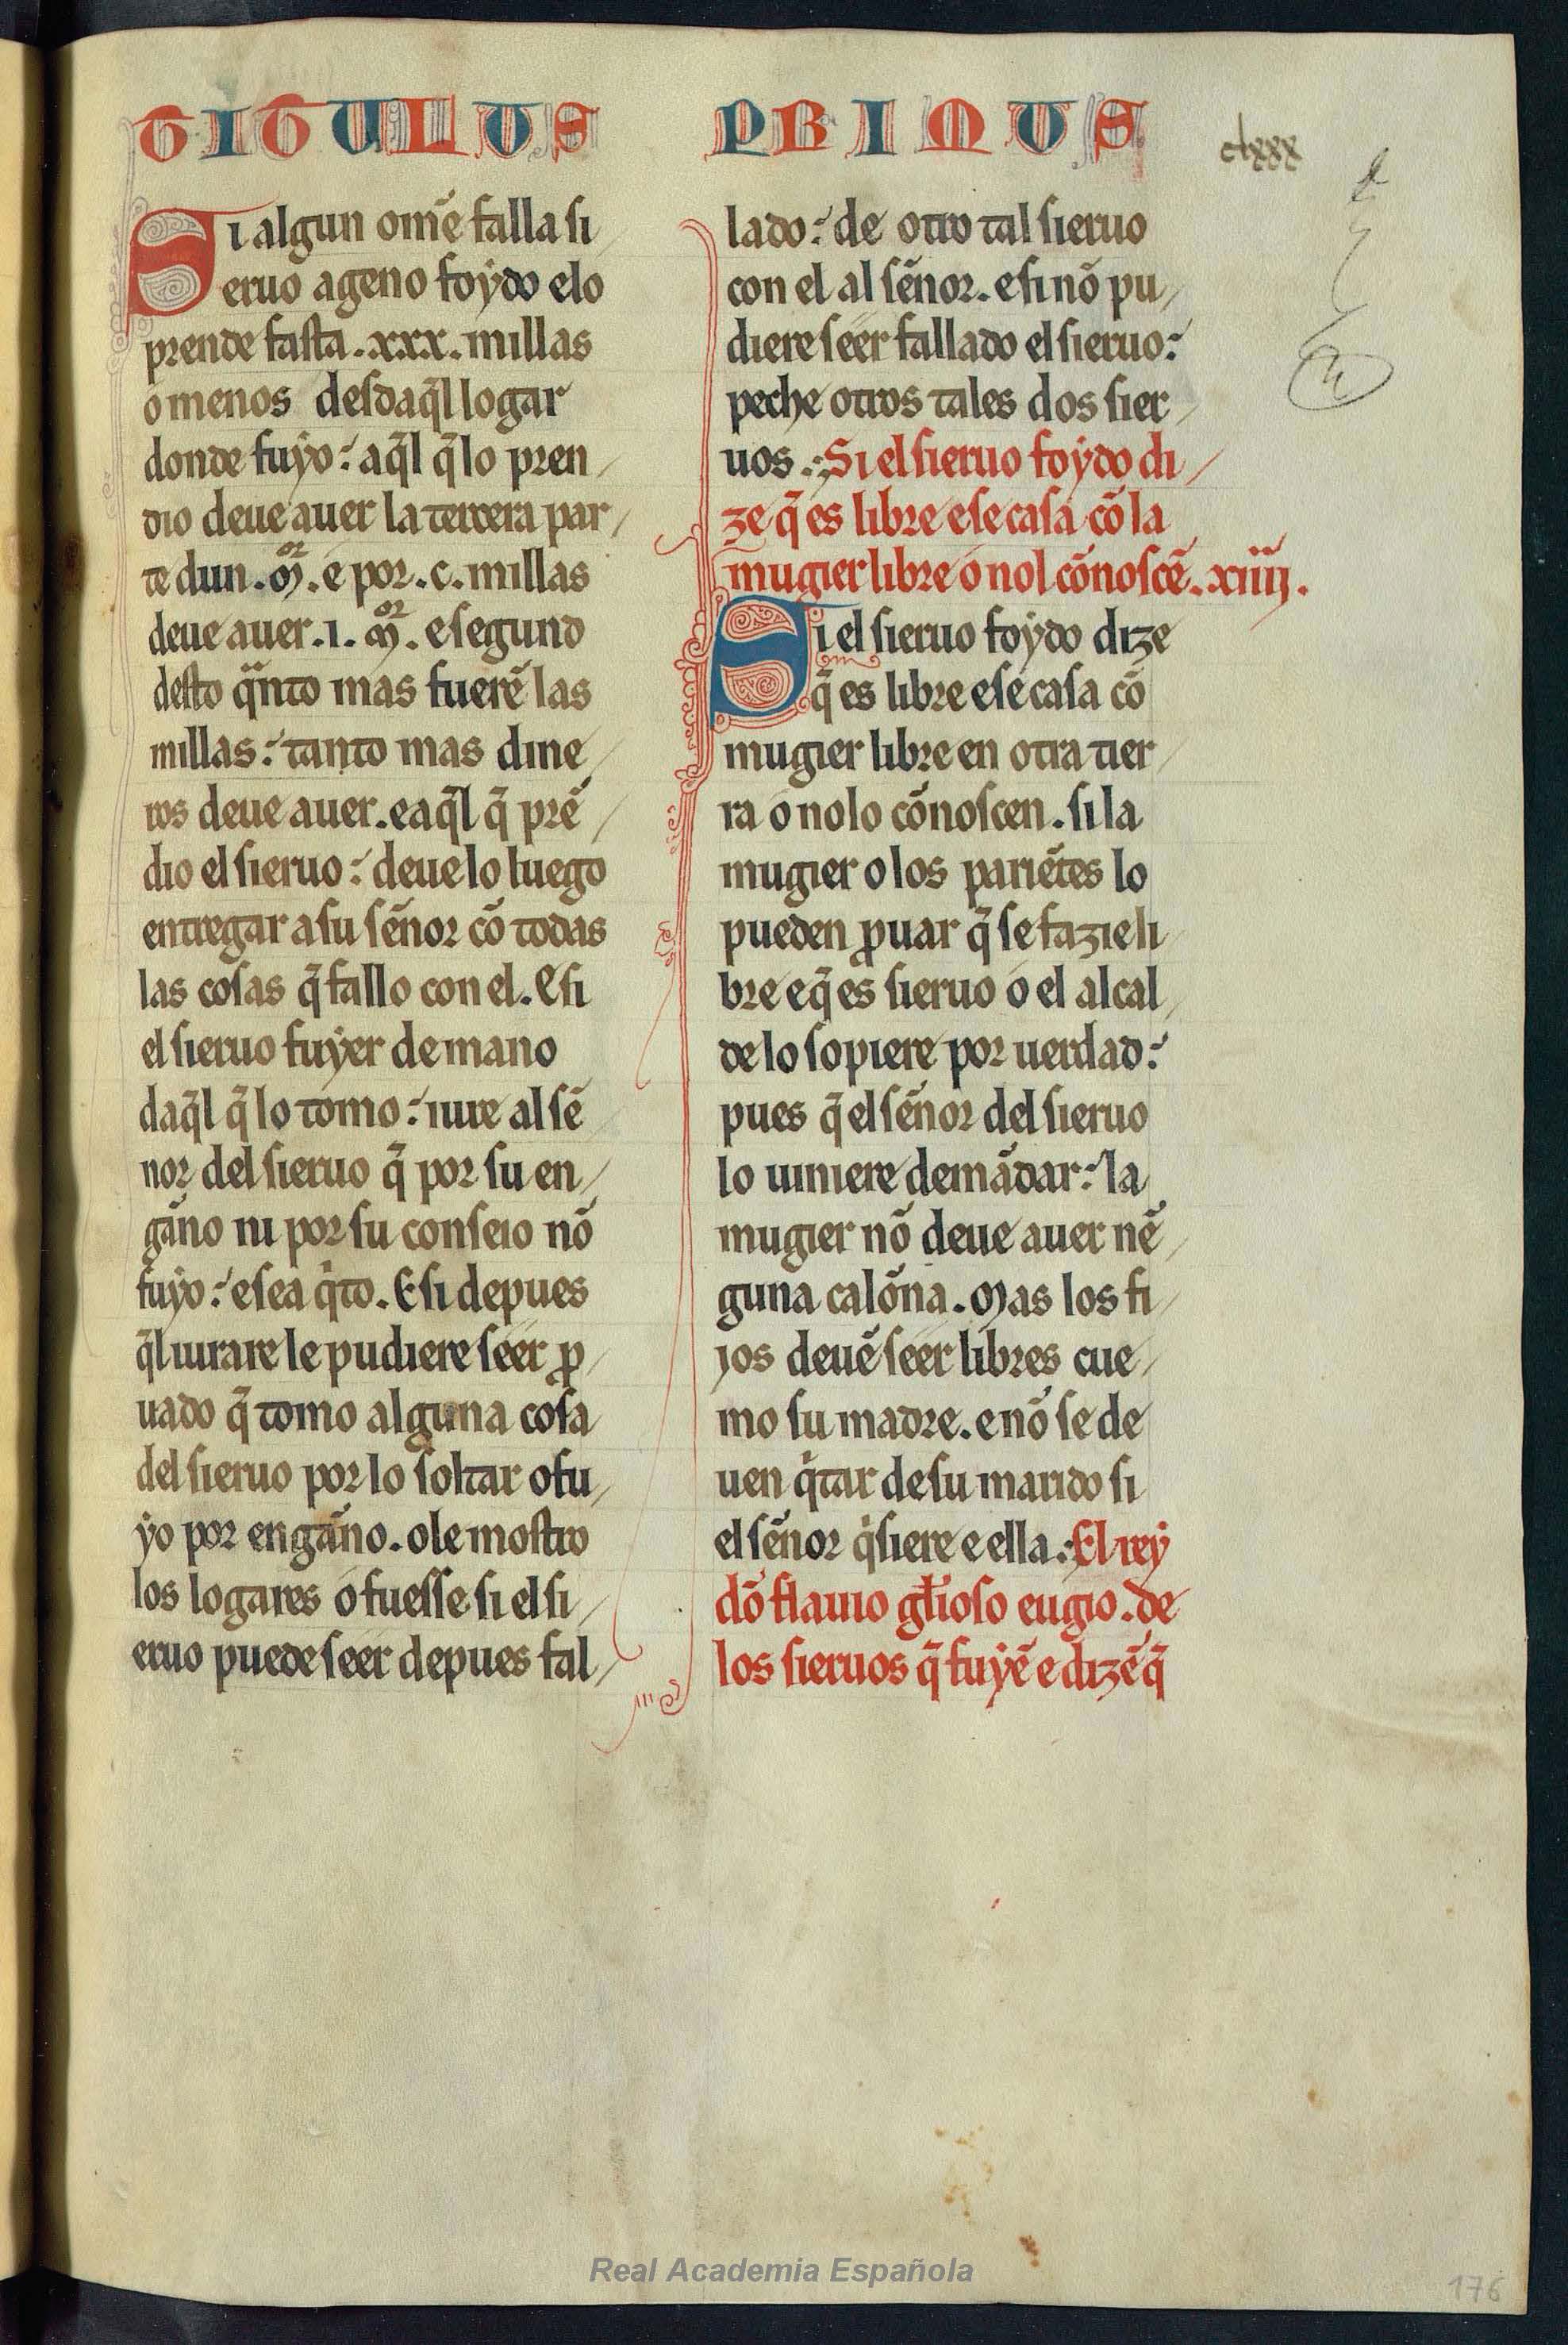 TITULUS PRIMUS
clxxx
Si algun om̃e falla si
eruo ageno foẏdo elo
prende fasta .xxx. millas
o menos desdaq̃l logar
donde fuẏo: aq̃l q̃ lo pren
dio deue auer la tercera par
te dun .mͦr. e por .c. millas
deue auer .i. mͦr. e segund
desto qᵃnto mas fuerẽ las
millas: tanto mas dine
ros deue auer. e aq̃l q̃ prẽ
dio el sieruo: deue lo luego
entregar a su sẽnor cõ todas
las cosas q̃ fallo con el. E si
el sieruo fuẏer de mano
daq̃l q̃ lo tomo: iure al sẽ
nor del sieruo q̃ por su en
gãno ni por su conseio nõ
fuẏo: e sea qⁱto. E si depues
q̃l iurare le pudiere seer ꝓ
uado q̃ tomo alguna cosa
del sieruo por lo soltar o fu
ẏo por engãno. o le mostro
los logares o fuesse si el si
eruo puede seer depues fal
lado: de otro tal sieruo
con el al sẽnor. e si nõ pu
diere seer fallado el sieruo:
peche otros tales dos sier
uos. Si el sieruo foẏdo di
ze q̃ es libre e se casa cõ la
mugier libre o nol cõnoscẽ. xiiij.
Si el sieruo foẏdo dize
q̃ es libre e se casa cõ
mugier libre en otra tier
ra o no lo cõnoscen. si la
mugier o los pariẽtes lo
pueden ꝓuar q̃ se fazie li
bre e q̃ es sieruo o el alcal
de lo sopiere por uerdad:
pues q̃ el sẽnor del sieruo
lo uiniere demãdar: la
mugier nõ deue auer nẽ
guna calõna. Mas los fi
jos deuẽ seer libres cue
mo su madre. e nõ se de
uen qⁱtar de su marido si
el sẽnor qⁱsiere e ella. El reẏ
dõ flauio gl̃ioso eugio. de
los sieruos q̃ fuẏẽ e dizẽ q̃
Real Academia Española
176